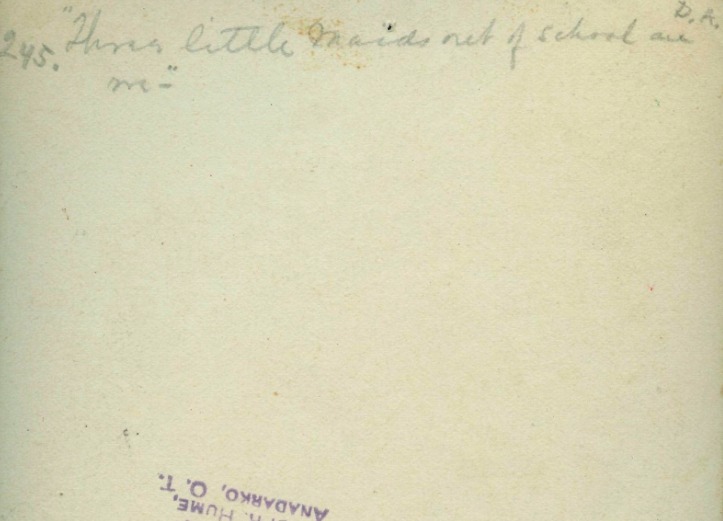 D. A.
245. "Three little maids out of school are
we-"
HUME,
ANADARKO, O. T.